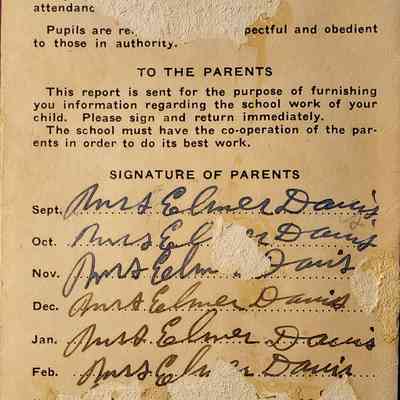 attendanc
Pupils are re pectful and obedient
to those in authority.
TO THE PARENTS
This report is sent for the purpose of furnishing
you information regarding the school work of your
child. Please sign and return immediately.
The school must have the co-operation of the par-
ents in order to do its best work.
SIGNATURE OF PARENTS
Sept. Mrs Elmer Davis
Oct. Mrs Elmer Davis
Nov. Mrs Elm Davis
Dec. Mrs Elmer Davis
Jan. Mrs Elmer Davis
Feb. Mrs Elmer Davis